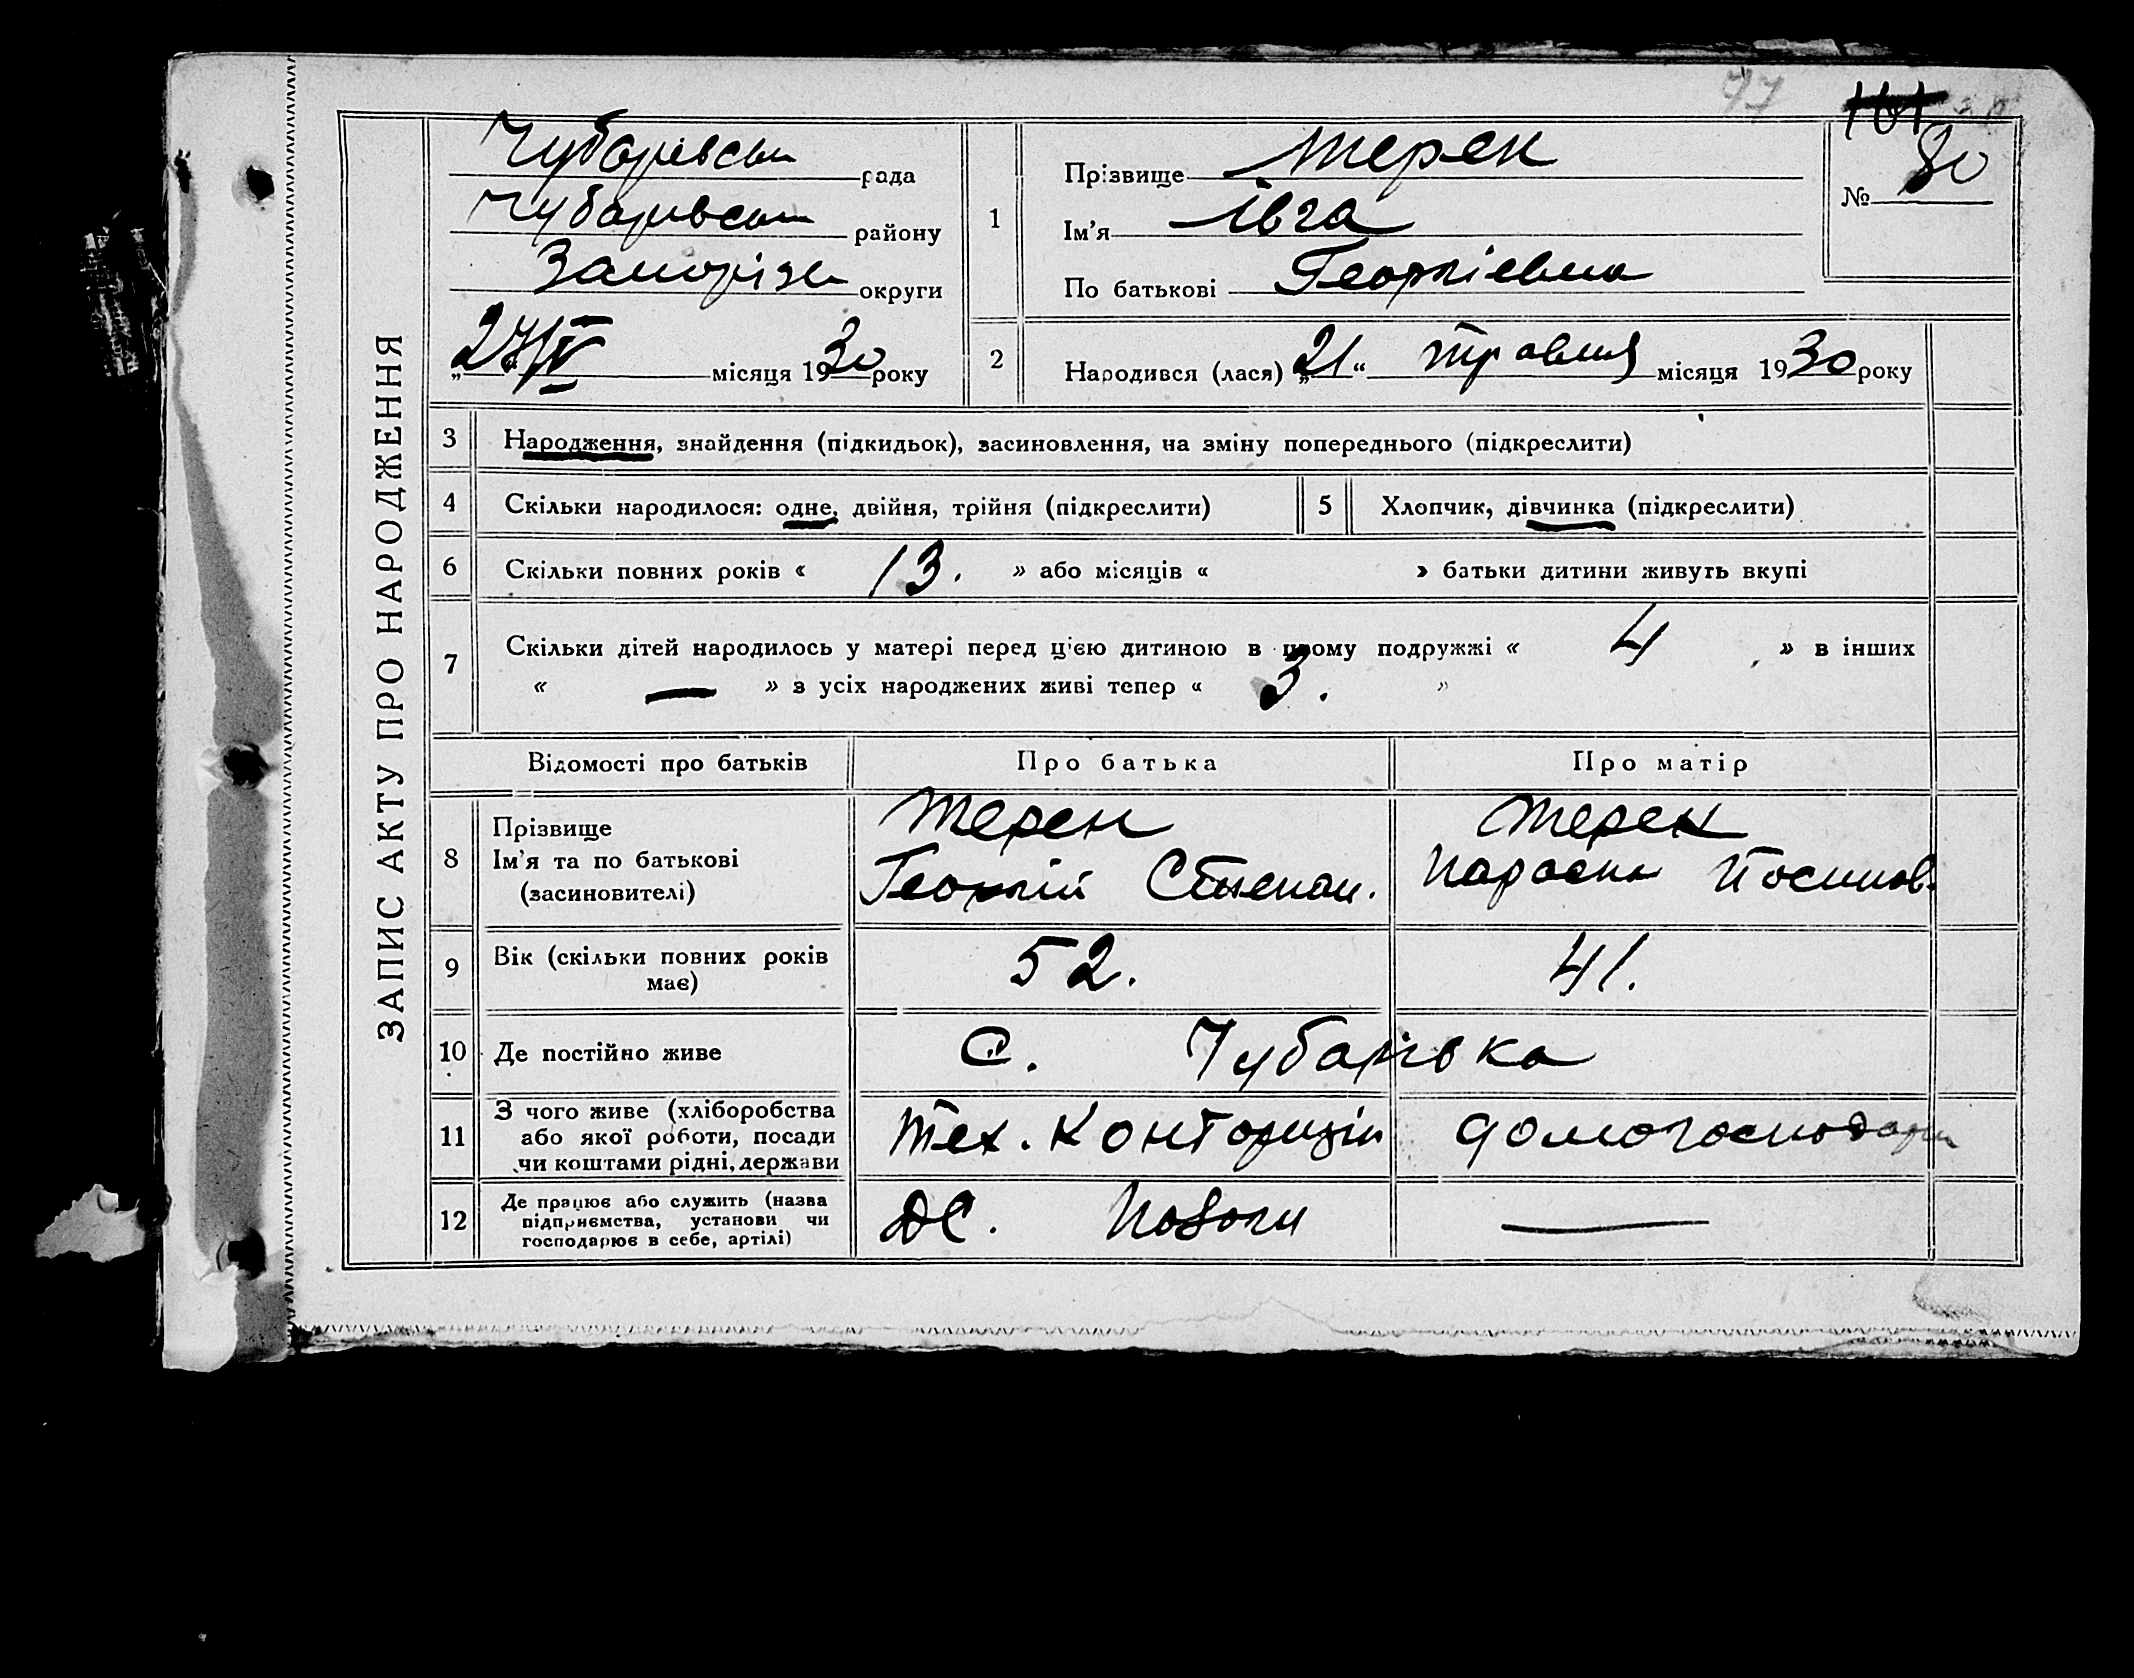 77
101
ЗАПИС АКТУ ПРО НАРОДЖЕННЯ
Чубарівськ рада
Чубарівськ району
Запоріж округи
„27/V місяця 1930 року
1
Прізвище Терен
Ім’я Івга
По батькові Георгіевна
№ 80
2
Народився (лася) „21“ травня місяця 1930 року
3 Народження, знайдення (підкидьок), засиновлення, на зміну попереднього (підкреслити)
4 Скільки народилося: одне, двійня, трійня (підкреслити)
5 Хлопчик, дівчинка (підкреслити)
6 Скільки повних років « 13. » або місяців « » батьки дитини живуть вкупі
7 Скільки дітей народилось у матері перед цією дитиною в цьому подружжі « 4 » в інших
« — » з усіх народжених живі тепер « 3. »
Відомості про батьків Про батька Про матір
8 Прізвище
Ім’я та по батькові
(засиновителі)
Терен
Георгій Степан.
Терен
Параска Йосипов.
9 Вік (скільки повних років
має)
52. 41.
10 Де постійно живе с. Чубарівка
11 З чого живе (хліборобства
або якої роботи, посади
чи коштами рідні, держави
Тех.
домогосподарк
12 Де працює або служить (назва
підприємства, установи чи
господарює в себе, артілі)
ДС. Пологи —